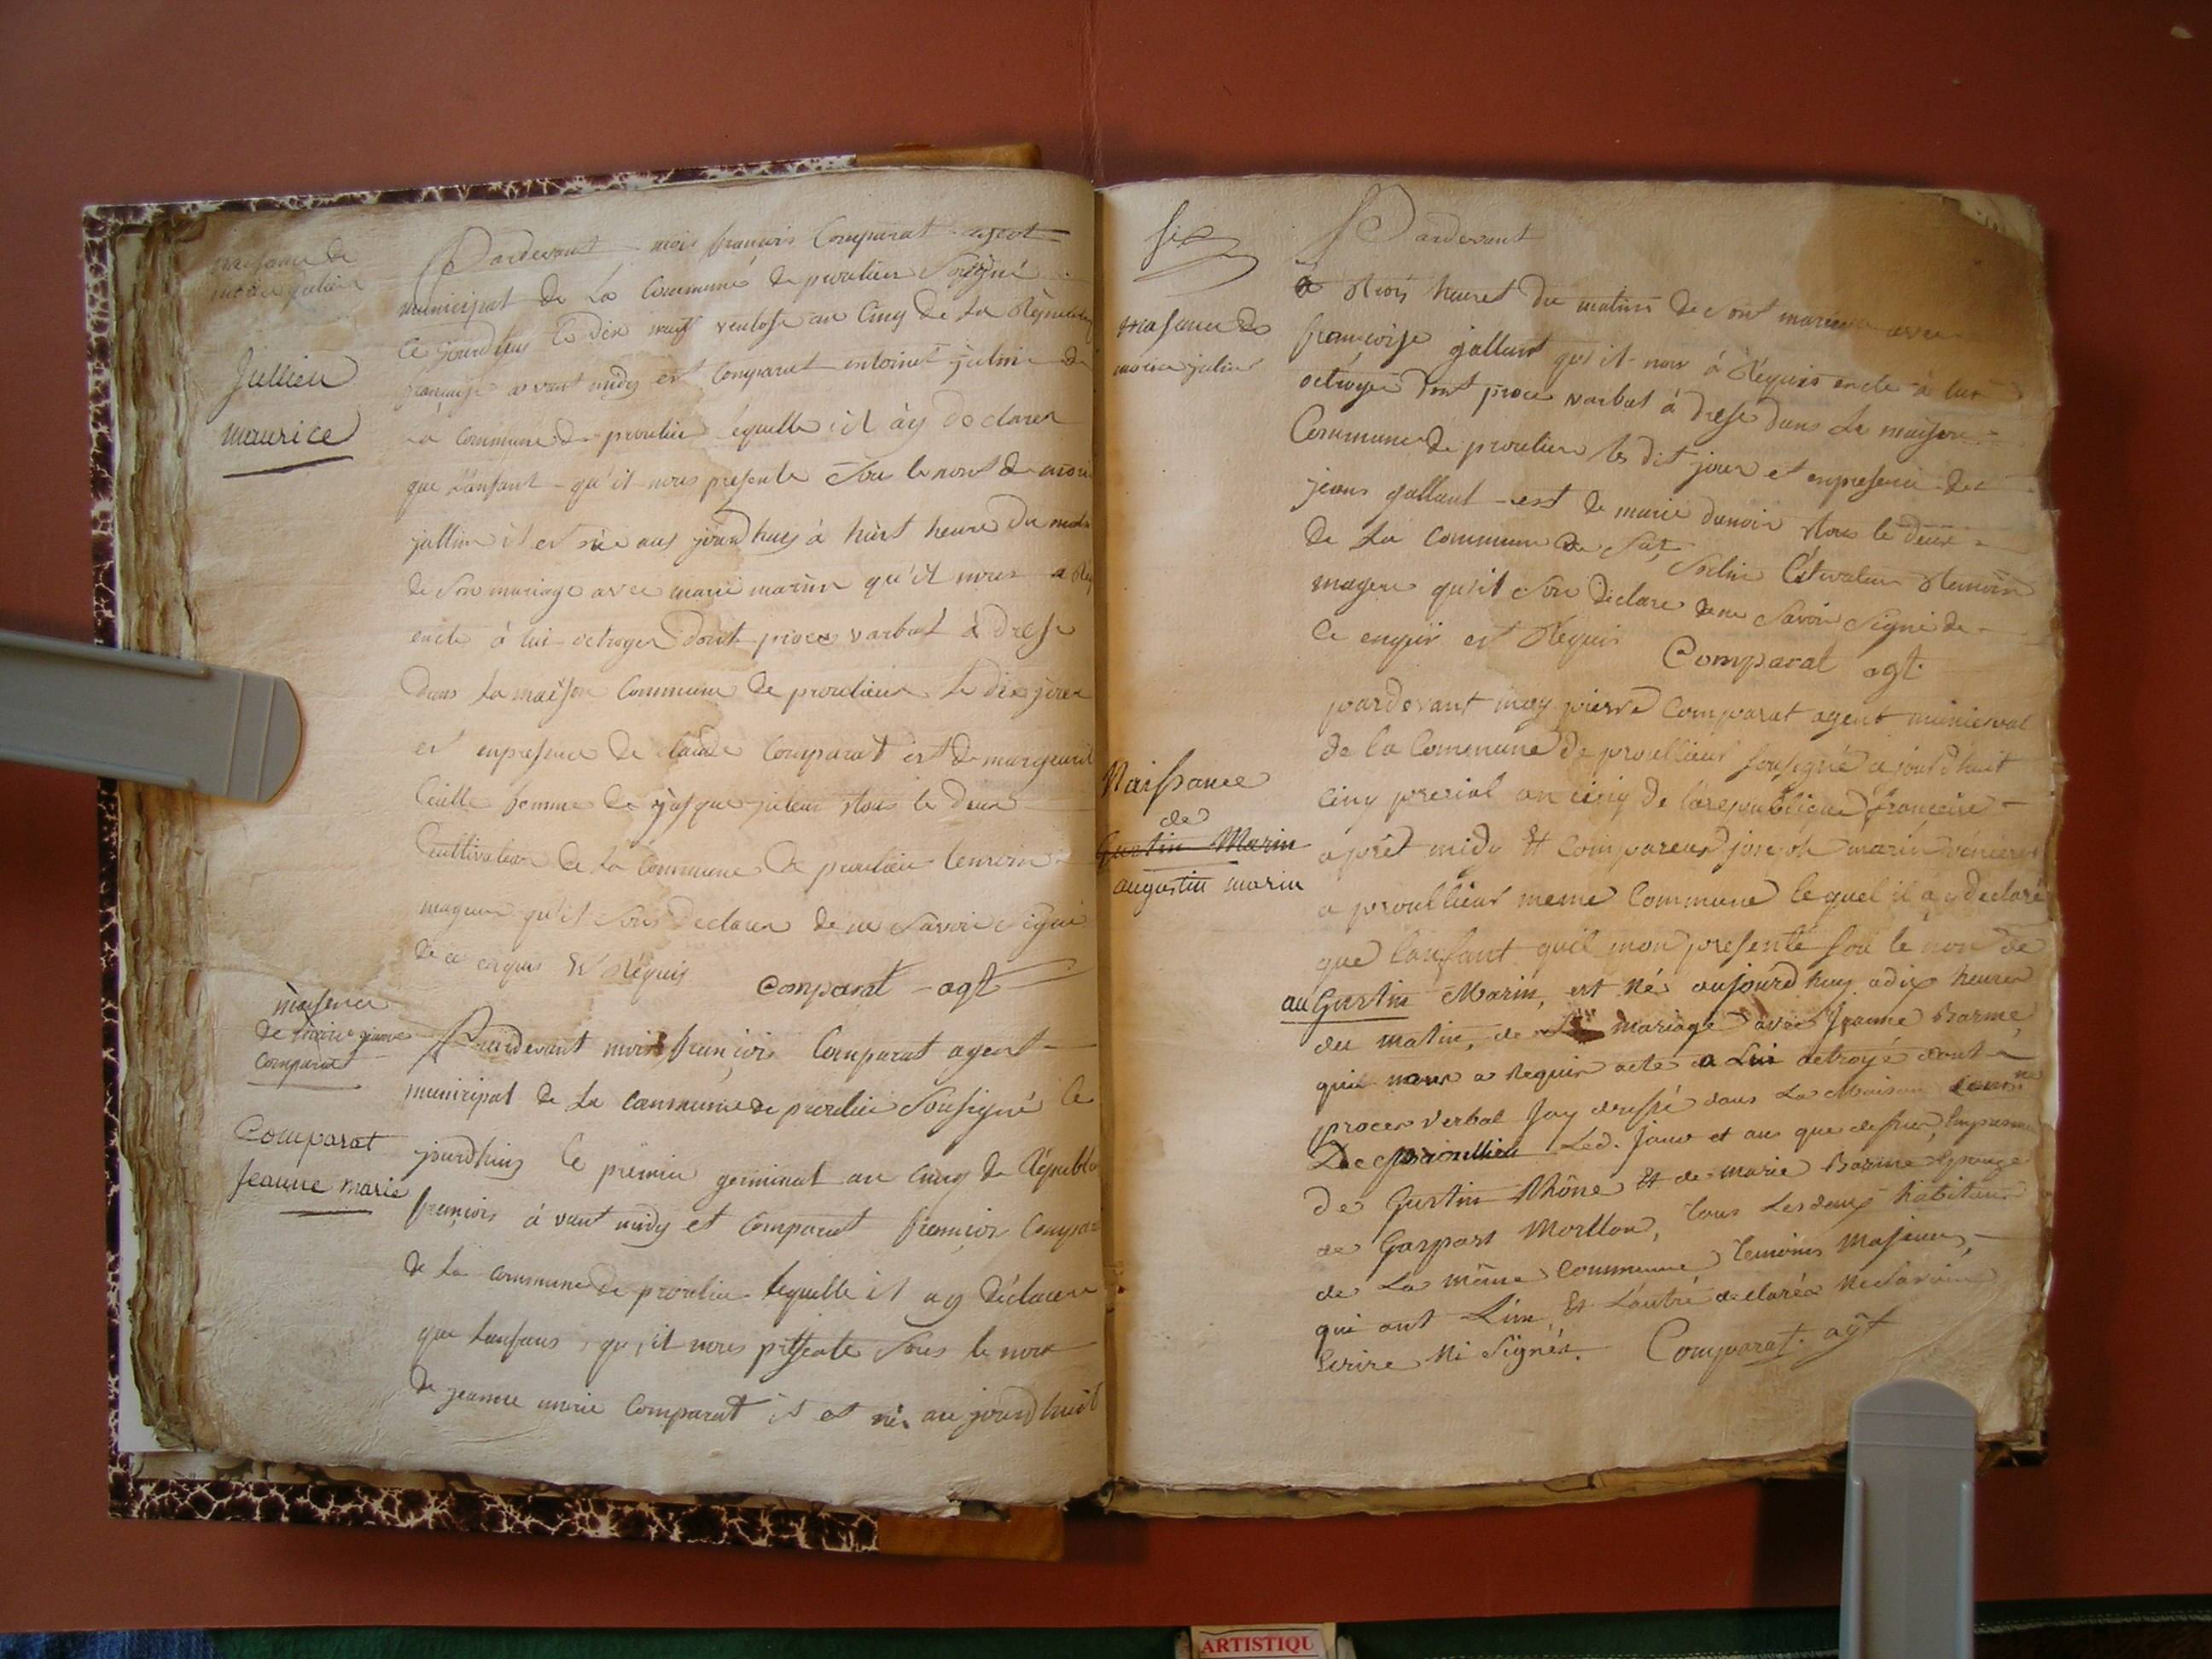 Pardevant moi françois Comparat agent
municipal de La Commune de proulieu Sousigné
Ce jourdhuy le dix neuf ventose an Cinq de La Republiq
française avant midy est Comparut antoine julin de
La Commune de proulieu lequelle il ày declarer
que L'anfant qu'il nous presente Sou le nont de mori
jullin il est née aus jourdhuy à huit heure du matin
de Son mariage avec marie marin qu'il nous a Req
encte à lui octroyer dont proce varbal à drese
dans La maison Commune de proulieu Le dix jour
est enpresence de claude Comparat est de margerit
femme de jasque julein tous le deux
Cultivateur de La Commune de proulieu temoin
mageur qu'il Sons declarer de ne Savoir Signé
de ce enquis et Requis Comparat agt
naisance de
morice julien
Jullien
maurice
naisence
de marie jeanne
Comparat
Comparat
Jeanne marie
Pardevant mois françois Comparat agent
municipal de La Commune de proulieu Sousigné Ce
jourdhuy le premier germinal an Cinq de Républi
françois à vant midy et Comparut françois Compar
de La commune de proulieu lequelle il ay déclarer
que Lanfans qu,il nous présente Sous le nont
de jeanne marie Comparat il et née au jourdhuit
six
Pardevant
à trois heures du matin de Sont mariage avec
françoise gallant qu'il nou à Réquis encte à lui
octroyer dont proce varbal à drese dans La maison
Commune de proulieu les dit jour et enpresence de
jeans gallant est de marie dunoir tous le deux
de La Commune de Cultivateur temoin
mageur qu'il Son declare de ne Savoir Signé de
Ce enquir et Requis Comparat agt.
naisance de
morice julien
pardevant moy pierre Comparat agent municipal
de la Commune de proullieux sousigné ajourdhuit
cinq prerial an cinq de la republique françcise
aprêt midy Et Compareus joseph marin
a proullieux meme Commune lequel il ay declaré
que lanfant quil mon presente sou le non de
auGustin Marin, est né aujourdhuy a dix heures
du matin, de mariage avec Jeanne Barme,
quil nous a requis acte a Lui octroyé dont
procer verbal Jay dressé dans La Maison Comune
De proullieu Led. Jour et an que dessus, En presence
de Gustin Rhône Et de marie Barme Epouze
de Gaspart Morllon, tous Les deux habitans
de La même Commune temoins majeurs,
qui ont L'un, Et L'autre declarés ne Savoir
Ecrire Ni Signér. Comparat. agt
Naissance
de
Gustin Marin
augustin marin
ARTISTIQU